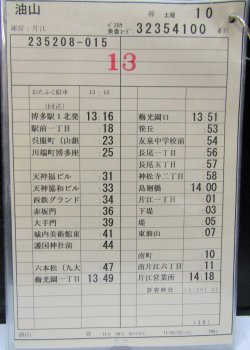 油山
土曜 10
運営:片江
32354100
235208-015
13
おたふく駐車 13:15
(回送)
博多駅1北発 13 16
駅前一丁目 18
呉服町(山銀 23
川端町博多座 25
天神福ビル 31
天神協和ビル 33
西鉄グランド 34
赤坂門 36
大手門 39
城内美術館東 41
護国神社前 44
六本松(九大 47
梅光園一丁目 13 49
梅光園口 13 51
笹丘 53
友泉中学校前 54
長尾一丁目 56
長尾五丁目 57
神松寺二丁目 58
島廻橋 14 00
片江一丁目 01
下堤 03
堤 05
東油山 07
南町 10
南片江六丁目 11
片江営業所 14 18